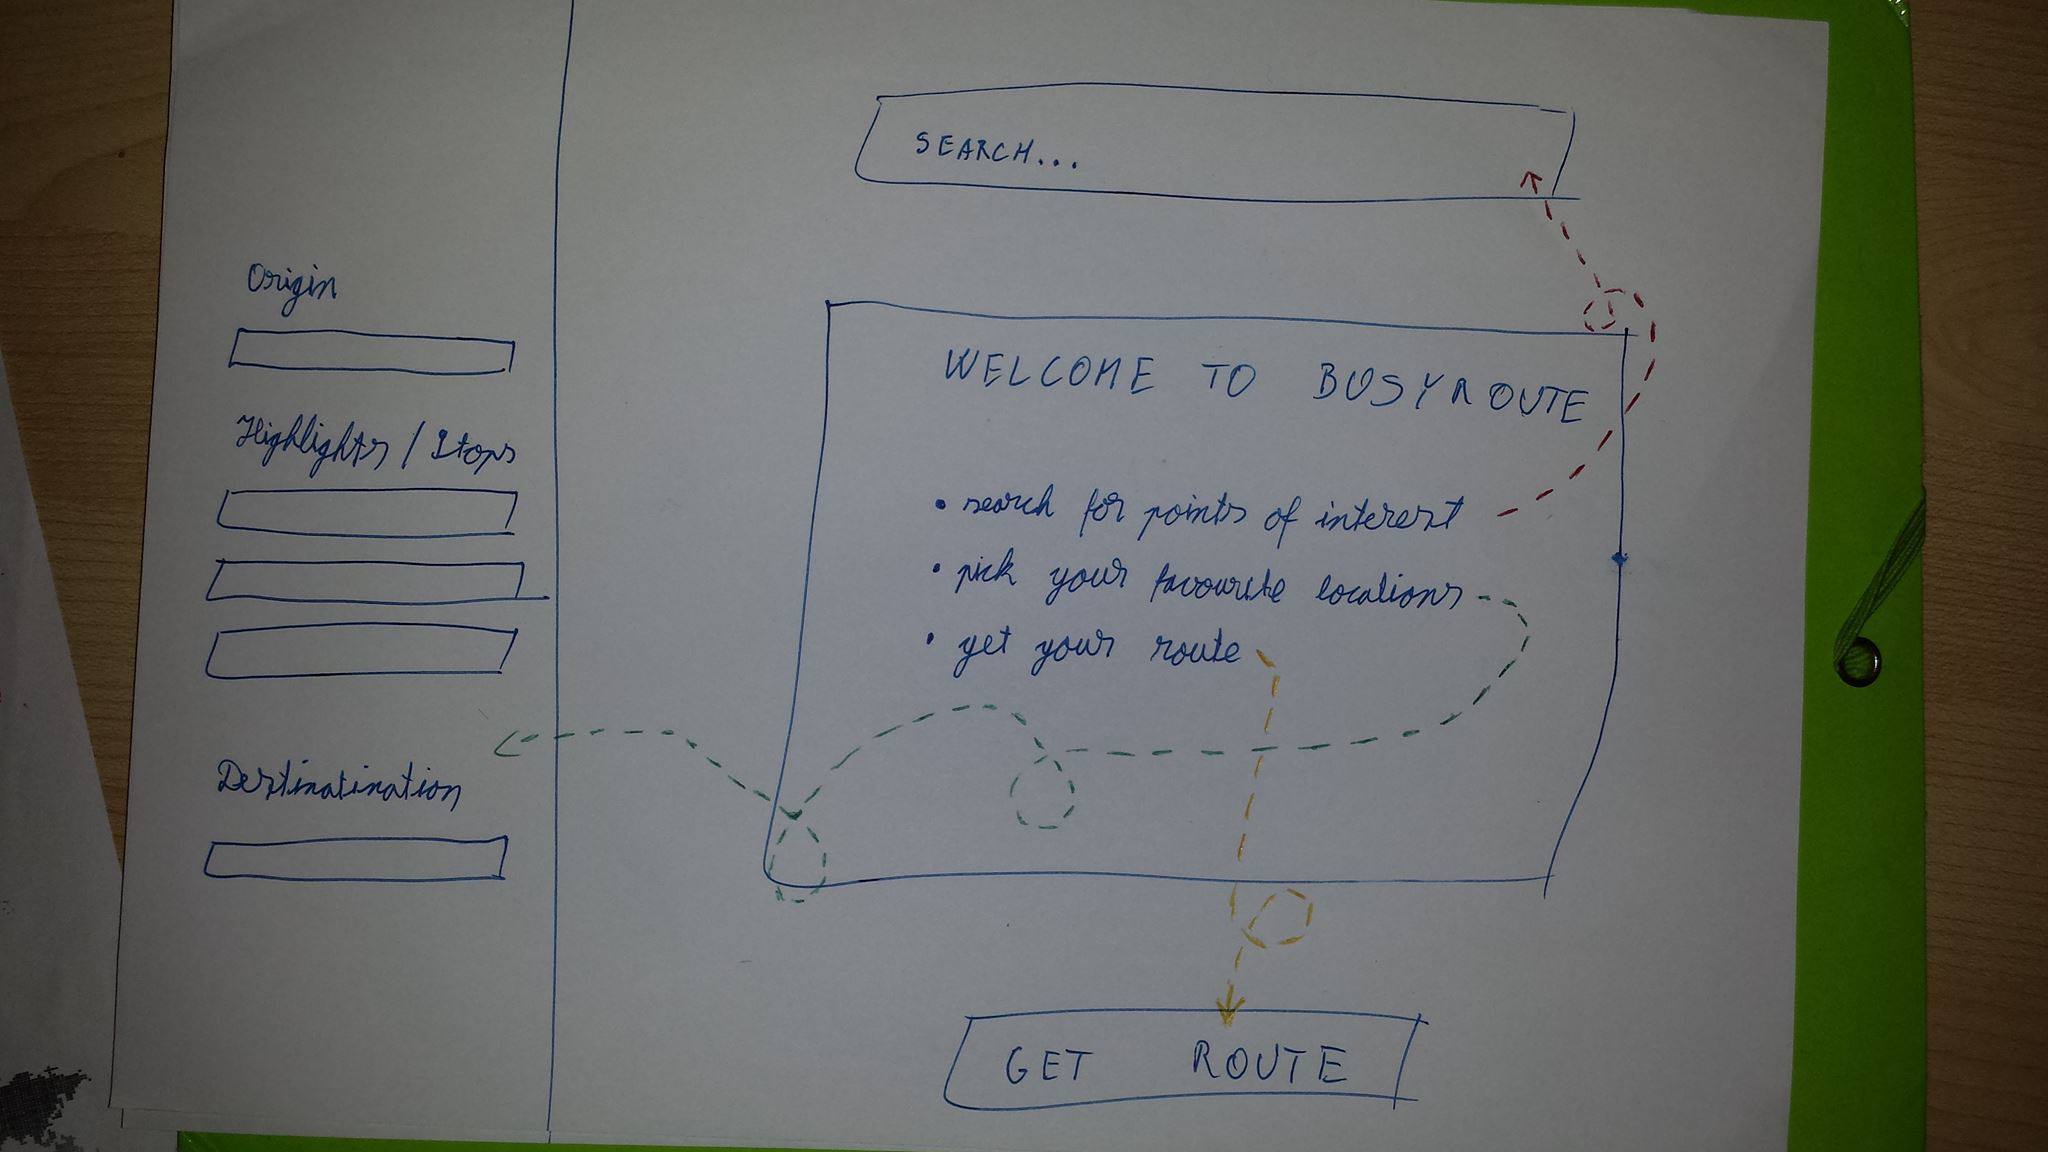 Origin
Highlights / Stops
Destinatination
SEARCH...
WELCOME TO BUSYROUTE
• search for points of interest
• pick your favourite locations
• get your route
GET ROUTE